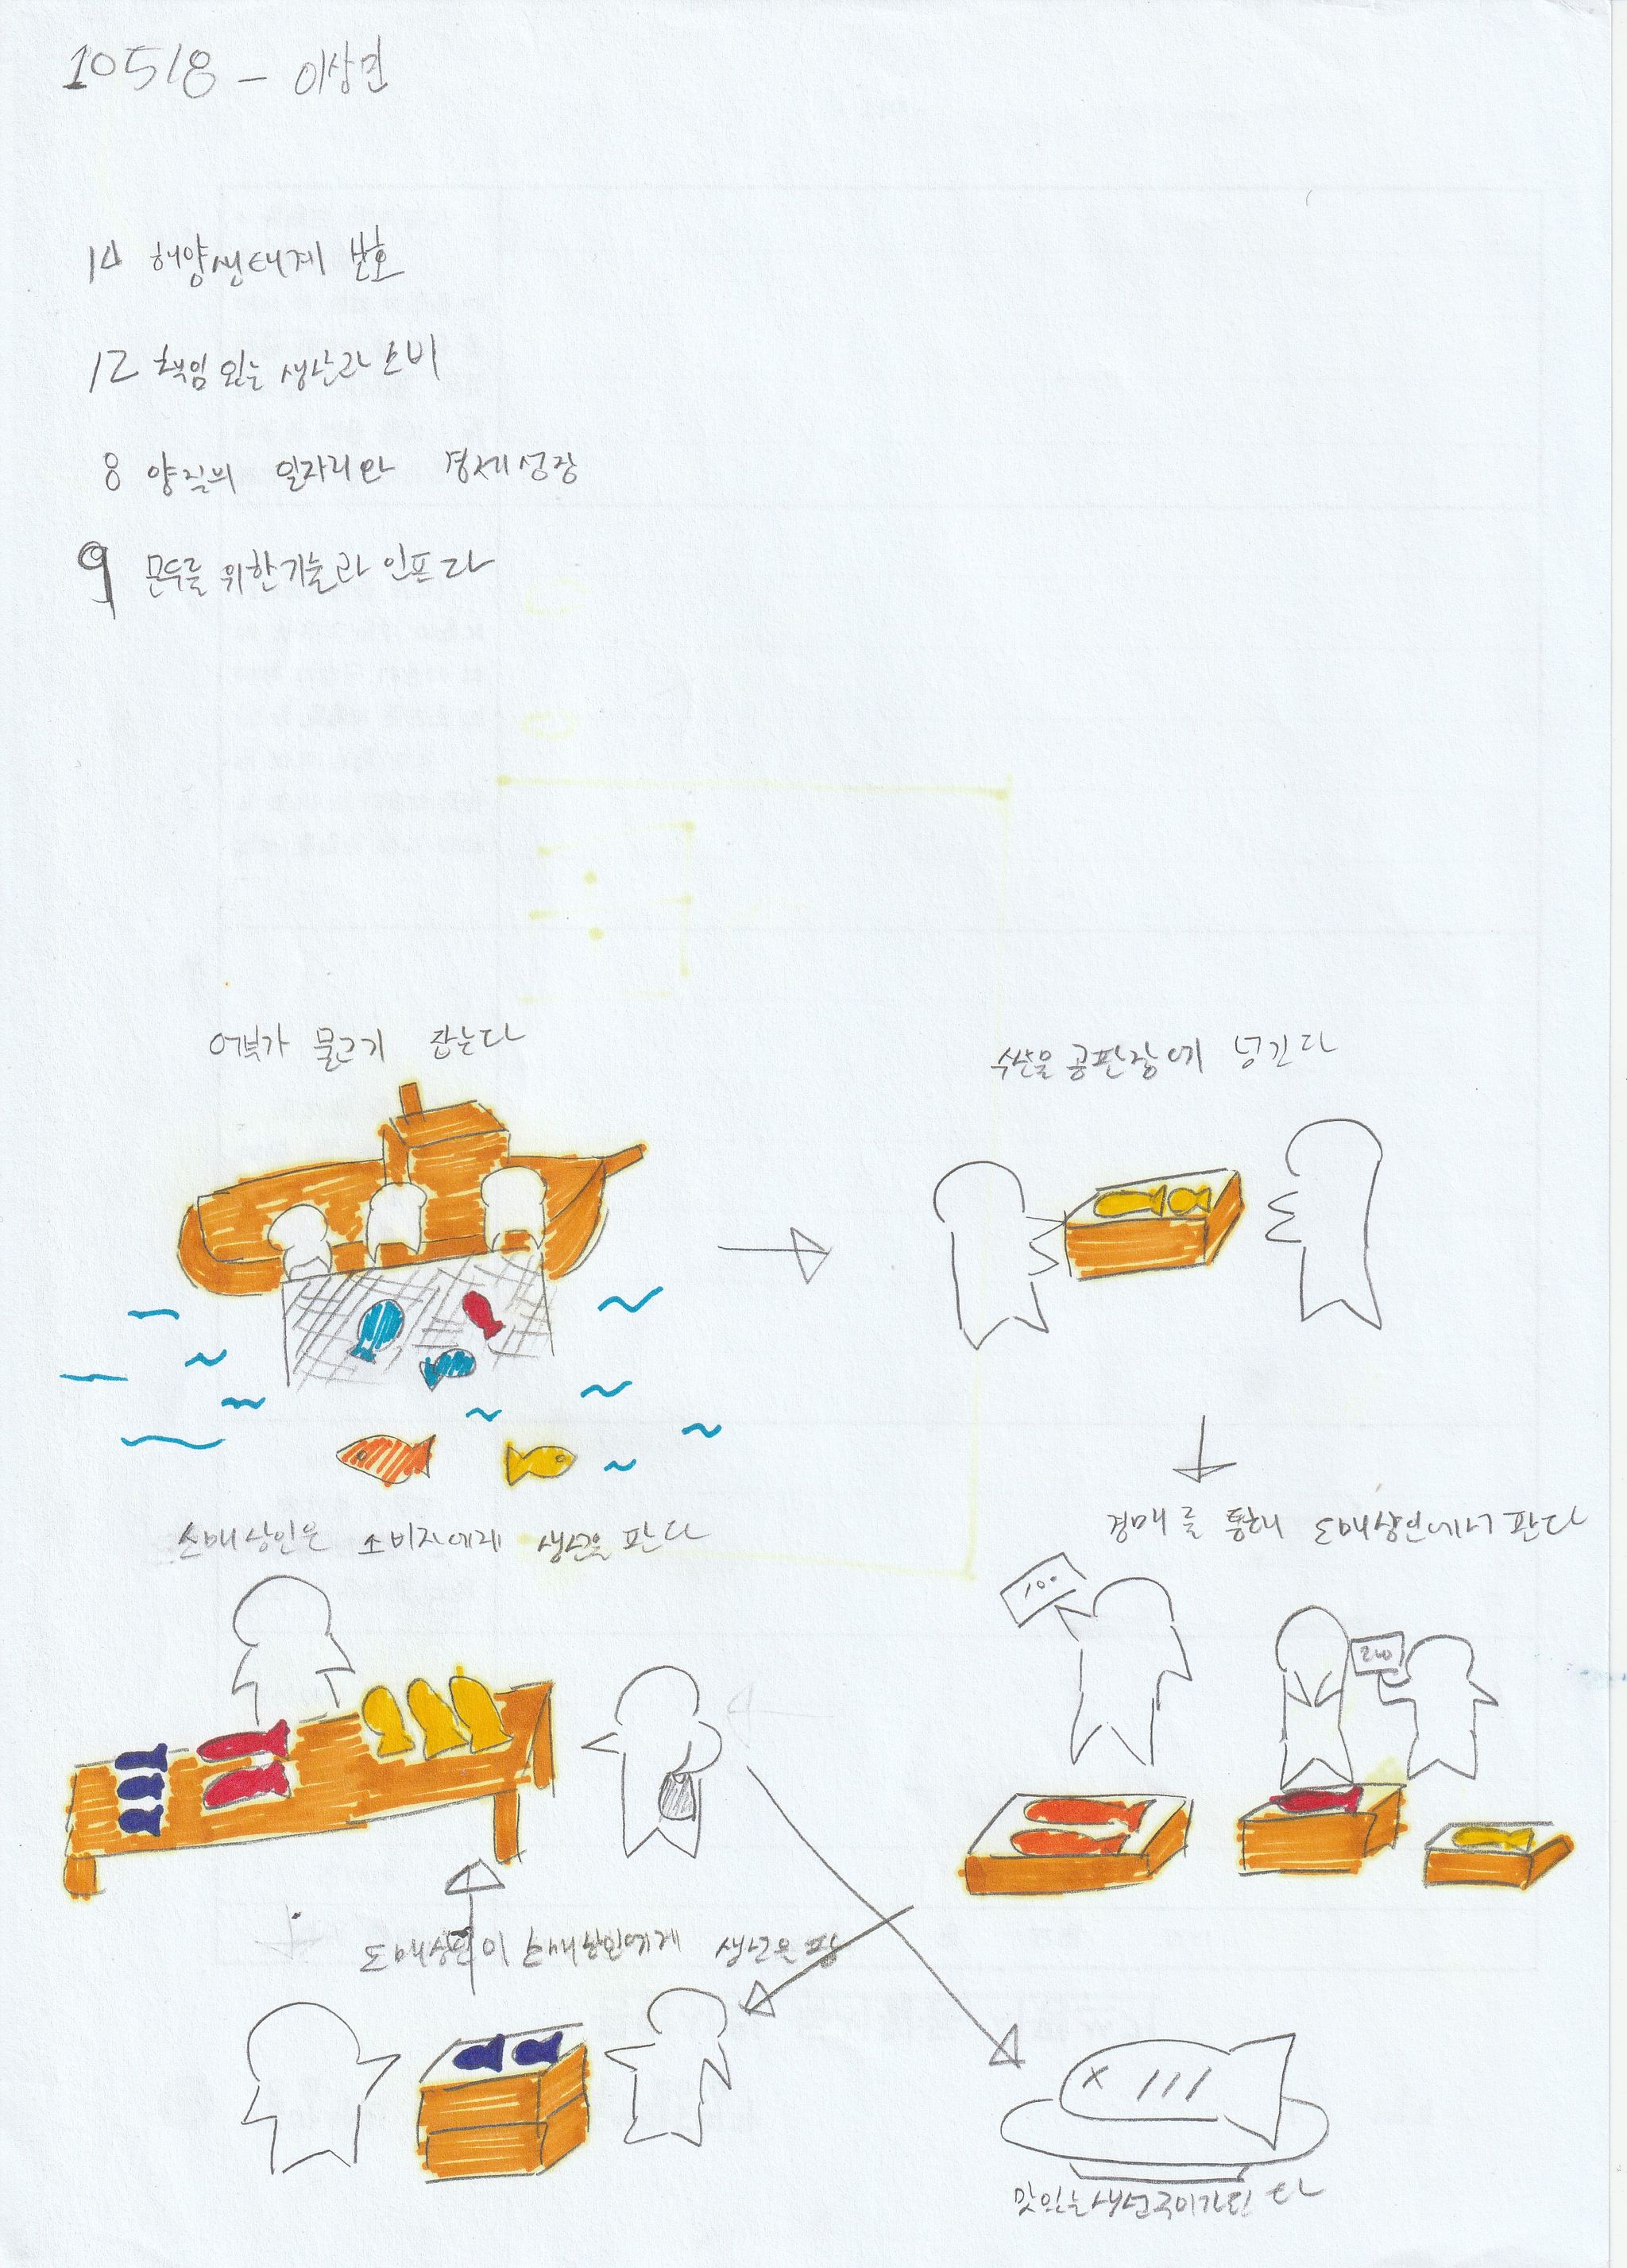 10518 - 이상민
14 해양생태계 보호
12 책임 있는 생산과 소비
8 양질의 일자리와 경제성장
9 모두를 위한 기술과 인프라
어부가 물고기 잡는다
수산물 공판장에 넘긴다
경매를 통해 도매상인에게 판다
100
200
소매상인은 소비자에게 생선을 판다
도매상인이 소매상인에게 생선을 팜
맛있는 생선구이가 된다